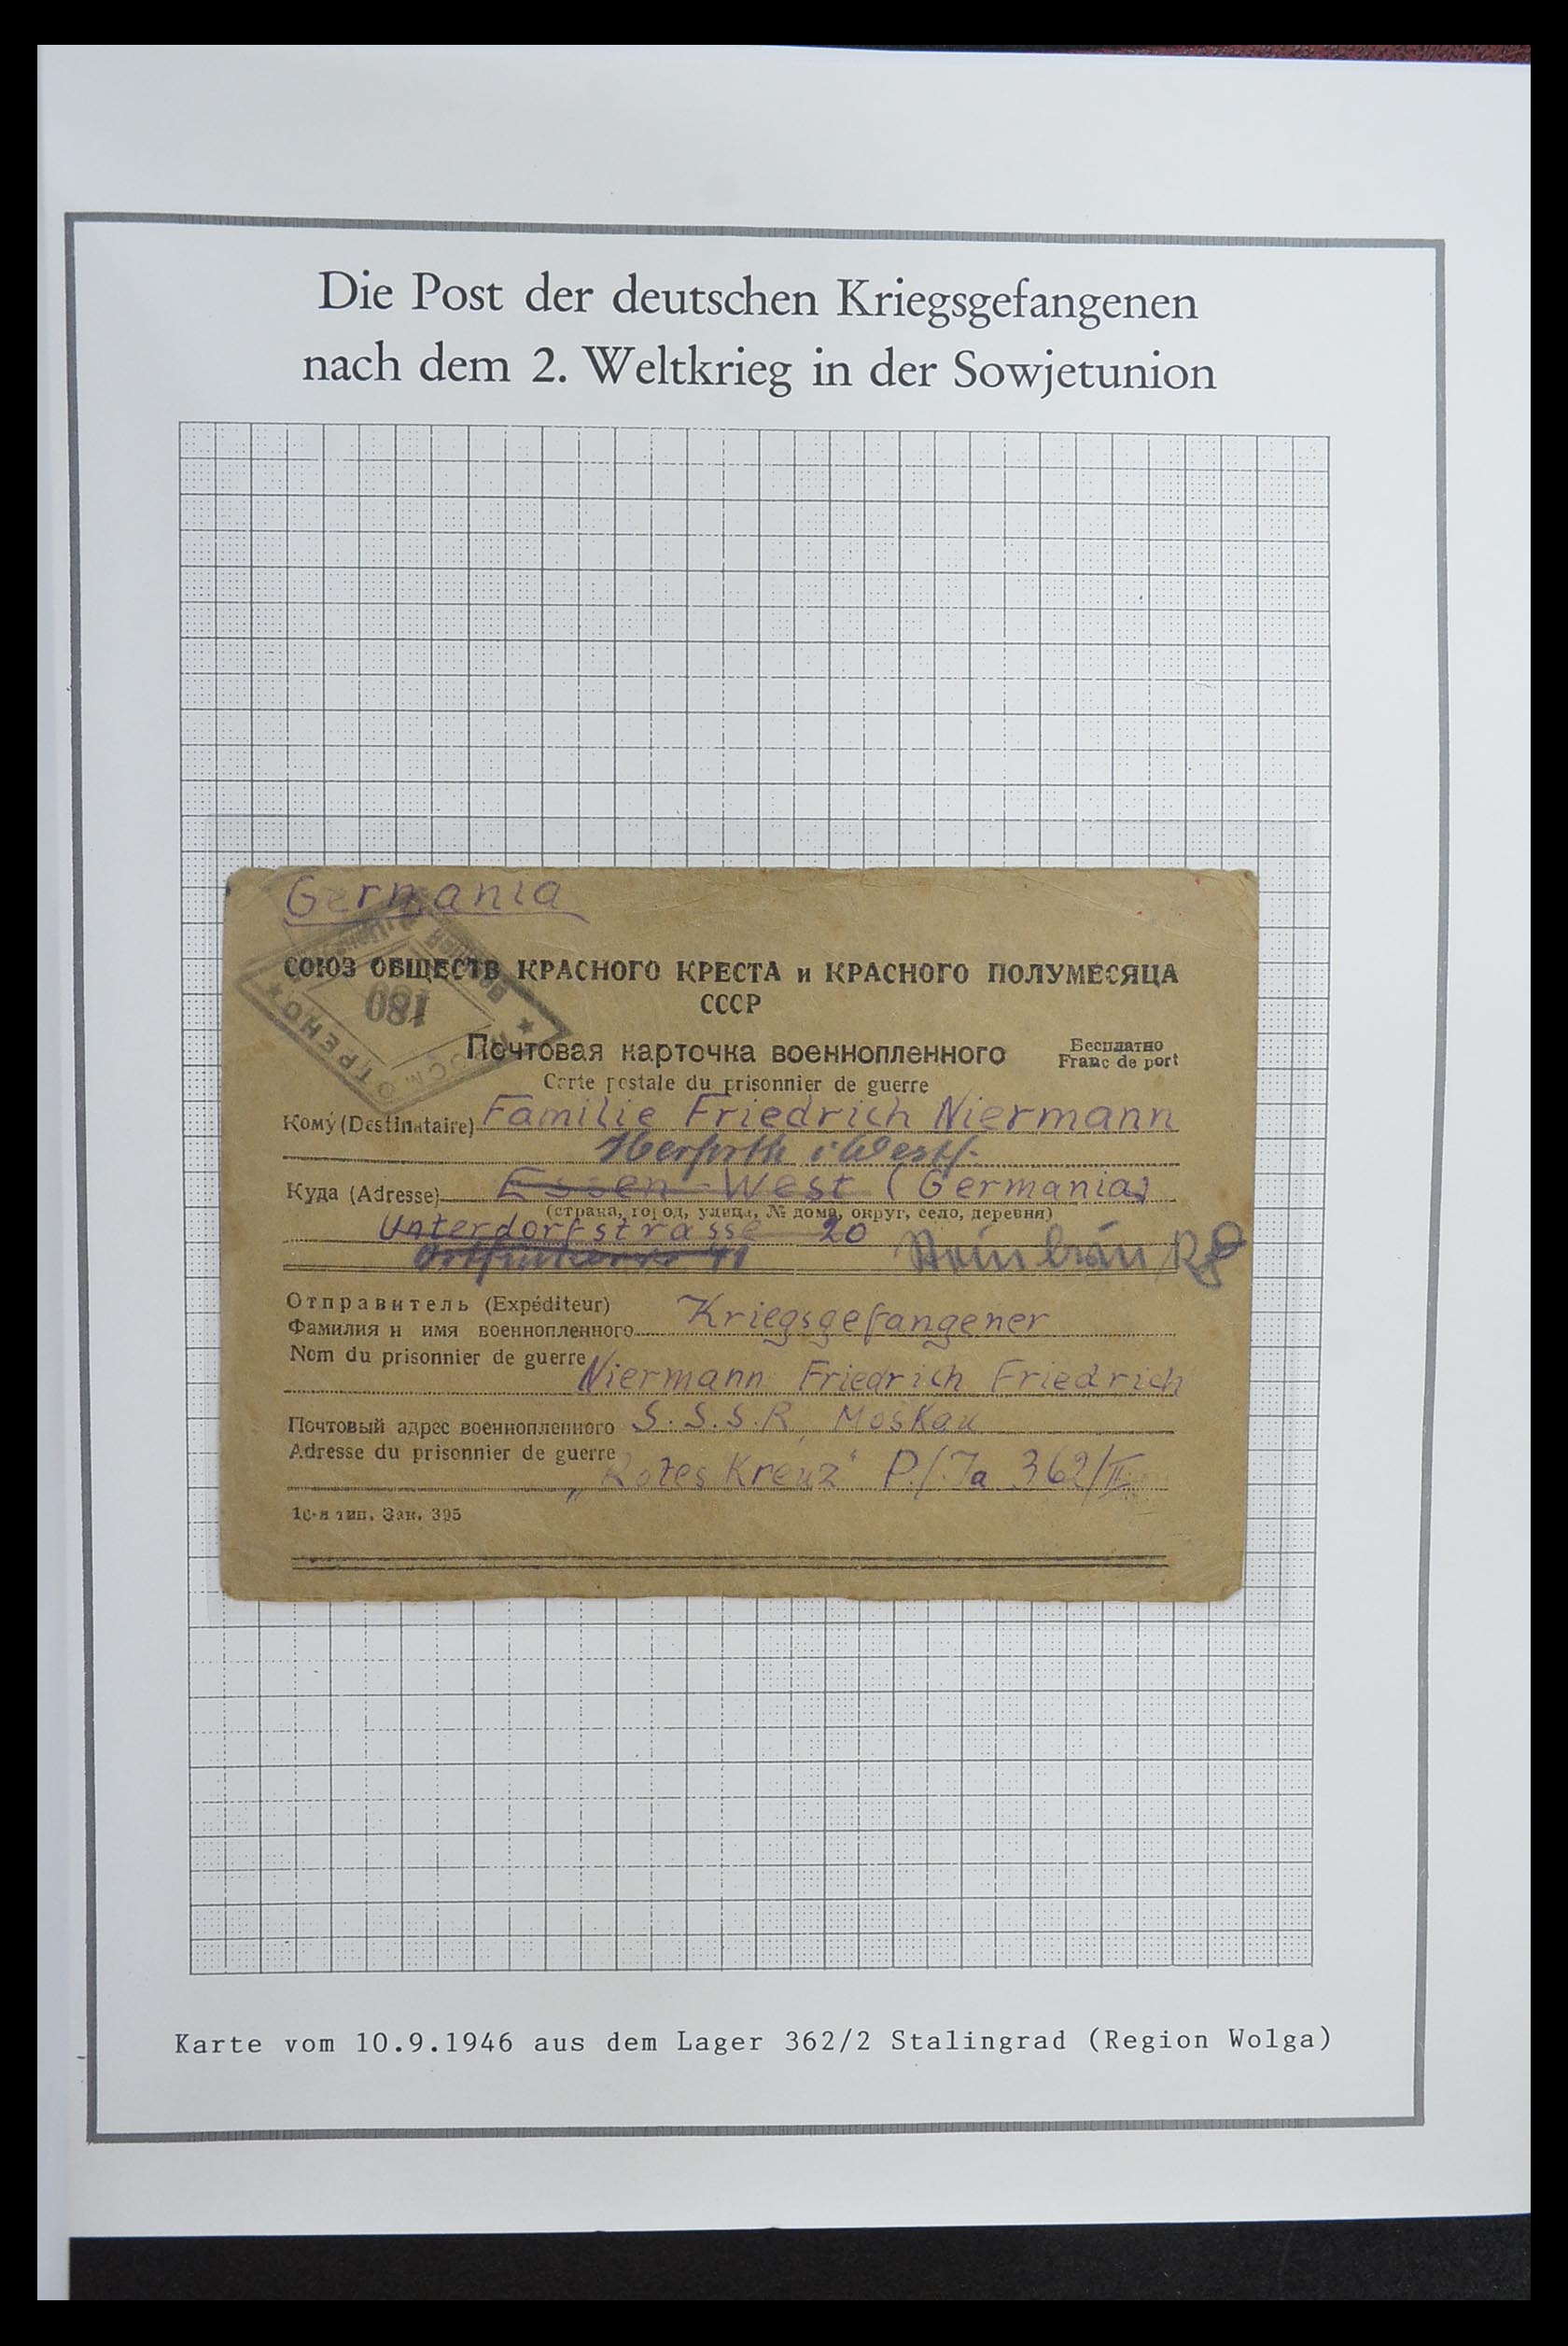 Die Post der deutschen Kriegsgefangenen
nach dem 2. Weltkrieg in der Sowjetunion
Germania
СОЮЗ ОБЩЕСТВ КРАСНОГО КРЕСТА и КРАСНОГО ПОЛУМЕСЯЦА
СССР
ПРОСМОТРЕНО
180
Почтовая карточка военнопленного
Бесплатно
Franc de port
Carte postale du prisonnier de guerre
Кому (Destinataire) Familie Friedrich Niermann
i. Westf.
Куда (Adresse) Essen-West (Germania)
(страна, город, улица, № дома, округ, село, деревня)
Unterdorfstrasse 20
Отправитель (Expéditeur)
Фамилия и имя военнопленного Kriegsgefangener
Nom du prisonnier de guerre
Niermann Friedrich Friedrich
Почтовый адрес военнопленного S.S.S.R. Moskau
Adresse du prisonnier de guerre
„Rotes Kreuz“ P./Ja 362/II
16-я тип. Зак. 395
Karte vom 10.9.1946 aus dem Lager 362/2 Stalingrad (Region Wolga)